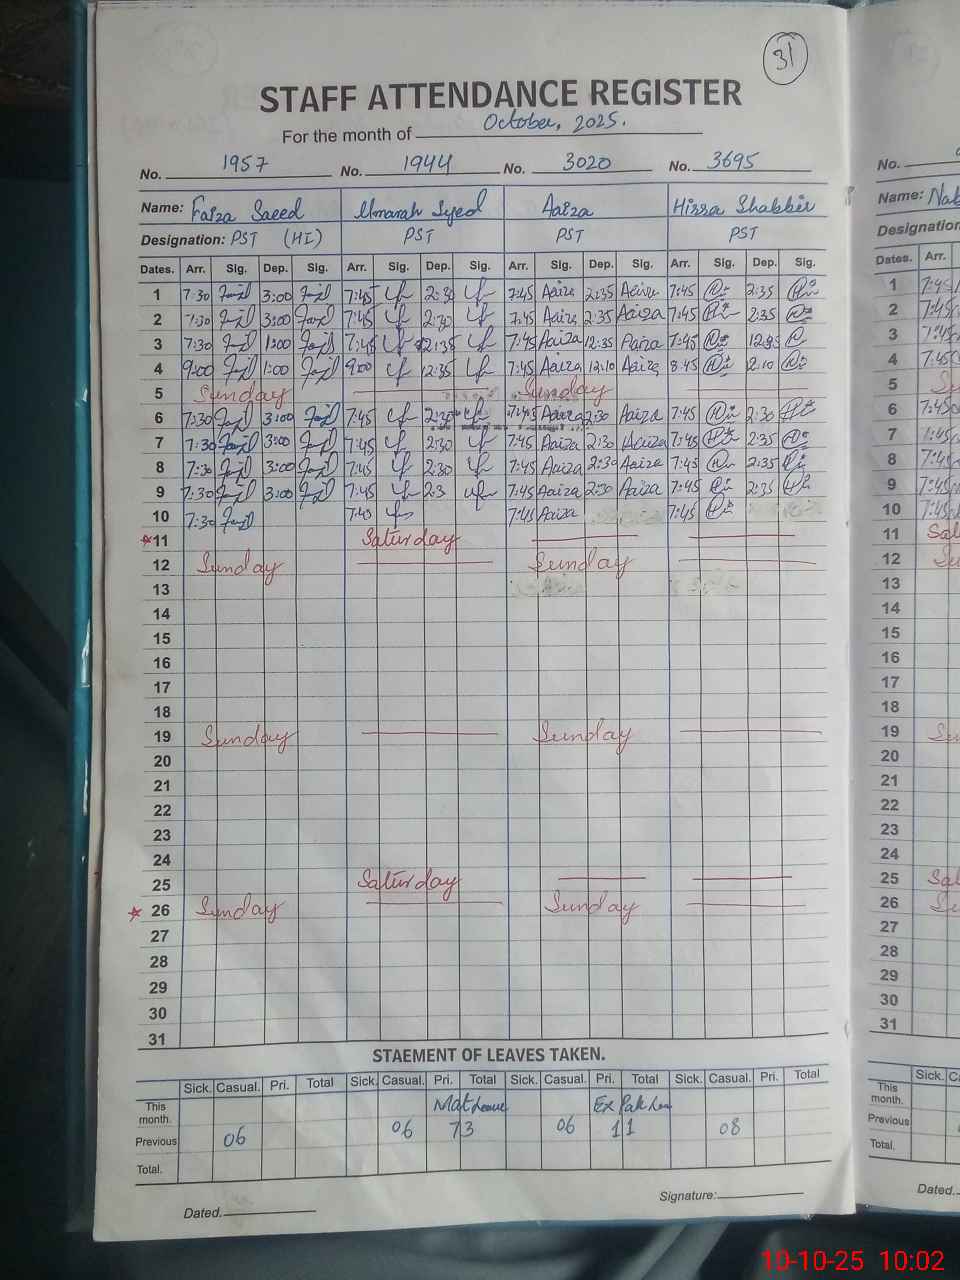 31
STAFF ATTENDANCE REGISTER
For the month of October, 2025.
No. 1957 No. 1944 No. 3020 No. 3695
Name: Faiza Saeed Umarah Syed Aaiza Hissa Shabbir
Designation: PST (HI) PST PST PST
Dates. Arr. Sig. Dep. Sig. Arr. Sig. Dep. Sig. Arr. Sig. Dep. Sig. Arr. Sig. Dep. Sig.
1 7:30 3:00 7:45 2:30 7:45 Aaiza 2:35 Aaiza 7:45 2:35
2 7:30 3:00 7:45 2:30 7:45 Aaiza 2:35 Aaiza 7:45 2:35
3 7:30 1:00 7:45 12:35 7:45 Aaiza 12:35 7:45 12:35
4 9:00 1:00 9:00 12:35 7:45 Aaiza 12:10 Aaiza 8:45 12:10
5 Sunday Sunday
6 7:30 3:00 7:45 2:30 7:45 Aaiza 2:30 Aaiza 7:45 2:30
7 7:30 3:00 7:45 2:30 7:45 Aaiza 2:30 Aaiza 7:45 2:35
8 7:30 3:00 7:45 2:30 7:45 Aaiza 2:30 Aaiza 7:45 2:35
9 7:30 3:00 7:45 2:3 7:45 Aaiza 2:30 Aaiza 7:45 2:35
10 7:30 7:40 7:45 Aaiza 7:45
11 Saturday
12 Sunday Sunday
13
14
15
16
17
18
19 Sunday Sunday
20
21
22
23
24
25 Saturday
26 Sunday Sunday
27
28
29
30
31
STAEMENT OF LEAVES TAKEN.
Sick. Casual. Pri. Total Sick. Casual. Pri. Total Sick. Casual. Pri. Total Sick. Casual. Pri. Total
This month. Mat Leave Ex Pak
Previous 06 06 73 06 11 08
Total.
Dated. Signature:
No.
Name:
Designation
Dates. Arr.
1 7:45
2 7:45
3 7:45
4 7:45
5
6 7:45
7 7:45
8 7:45
9 7:45
10 7:45
11
12
13
14
15
16
17
18
19
20
21
22
23
24
25
26
27
28
29
30
31
Sick.
This month.
Previous
Total.
Dated.
10-10-25 10:02